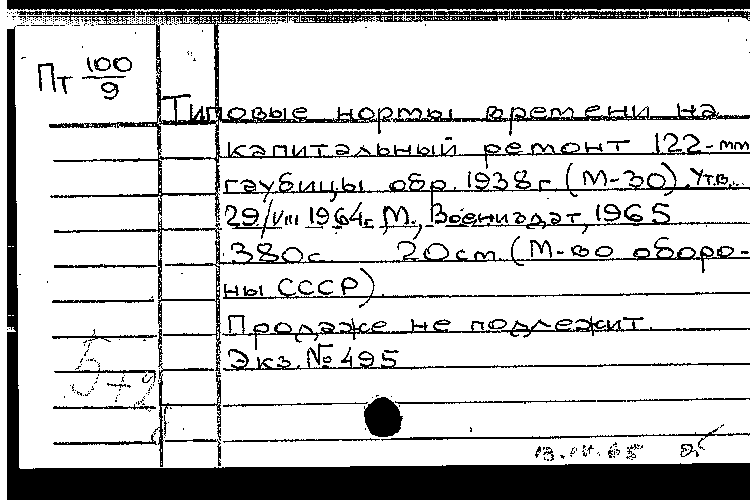 Пт 100/9
Типовые нормы времени на
капитальный ремонт 122-мм
гаубицы обр. 1938 г (М-30). Утв.
29/VIII 1964г. М., Воениздат, 1965
380с 20см (М-во оборо-
ны СССР).
Продаже не подлежит.
Экз. № 495
13.IV.65